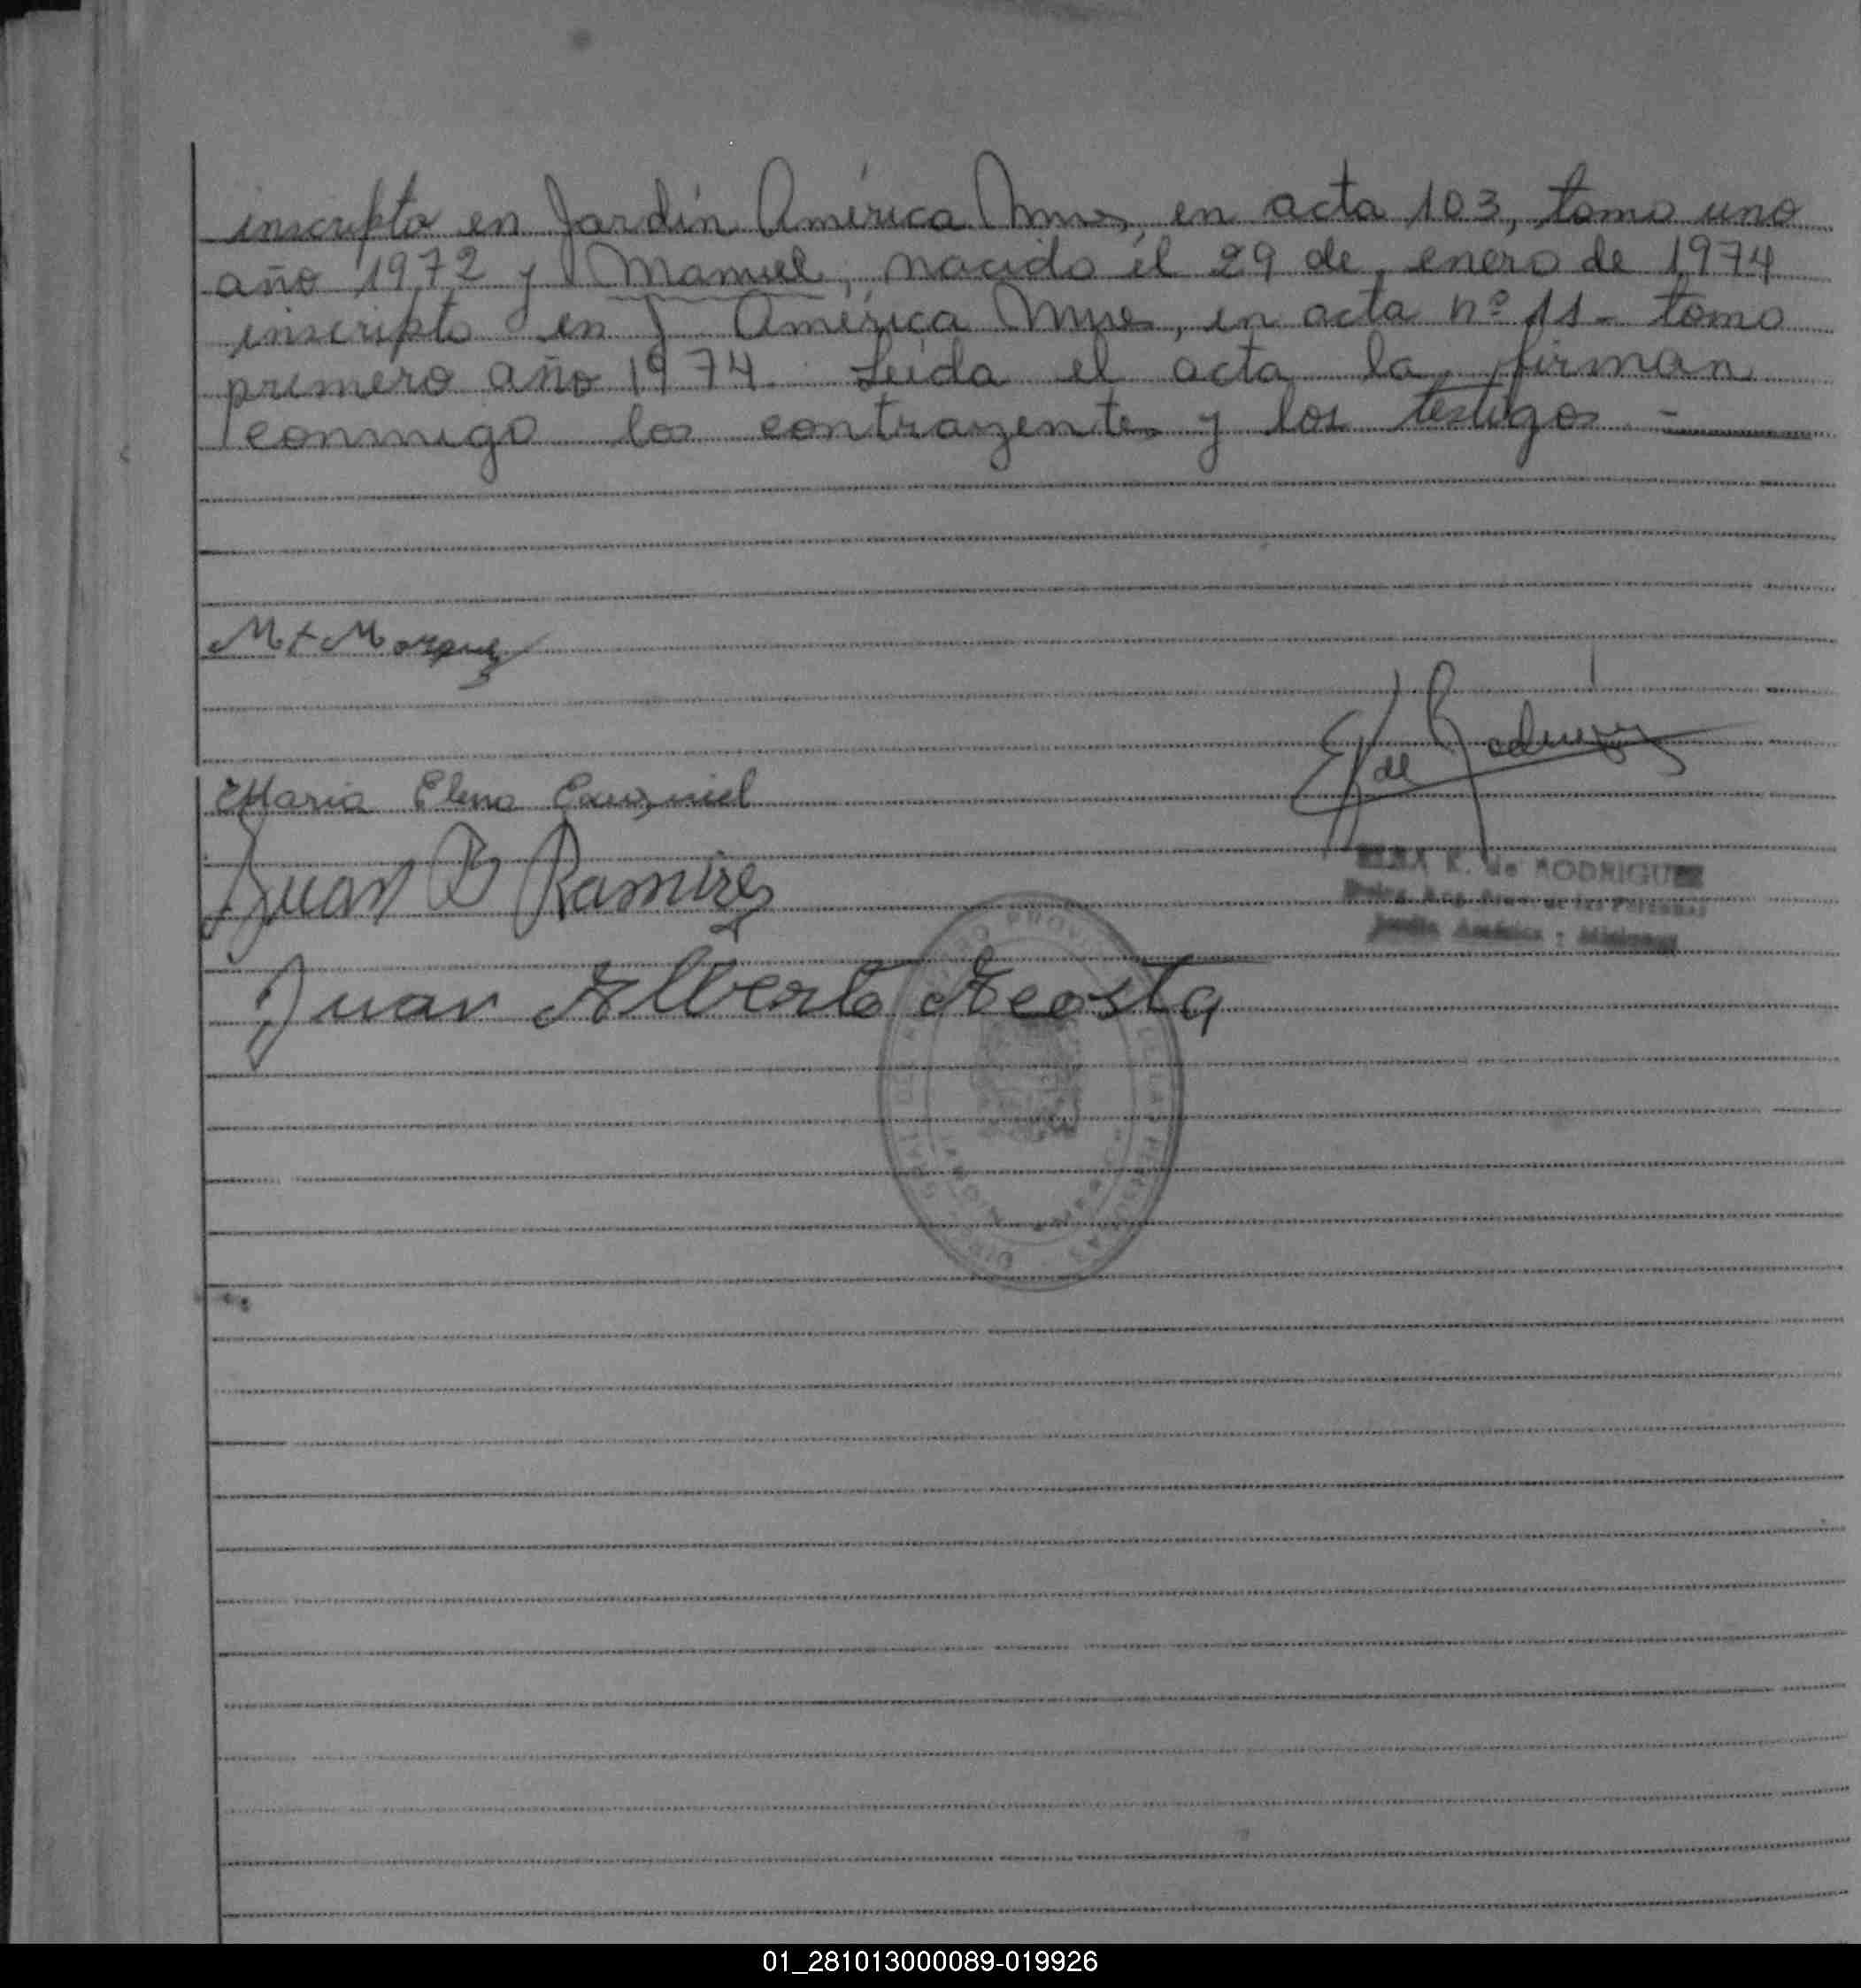 inscripto en Jardín América Mnes, en acta 103, tomo uno
año 1972 y Manuel, nacido el 29 de enero de 1974
inscripto en J América Mnes, en acta nº 11 - tomo
primero año 1974. Leída el acta la firman
conmigo los contrayentes y los testigos -
Marquez
de Rodriguez
Maria Elena
Juan B Ramirez
K. de RODRIGUEZ
de las Personas
Jardín América - Misiones
Juan Alberto Acosta
01_281013000089-019926